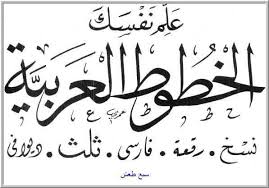 علم نفسك
الخطوط العربية
نسخ . رقعة . فارسى . ثلث . ديوانى